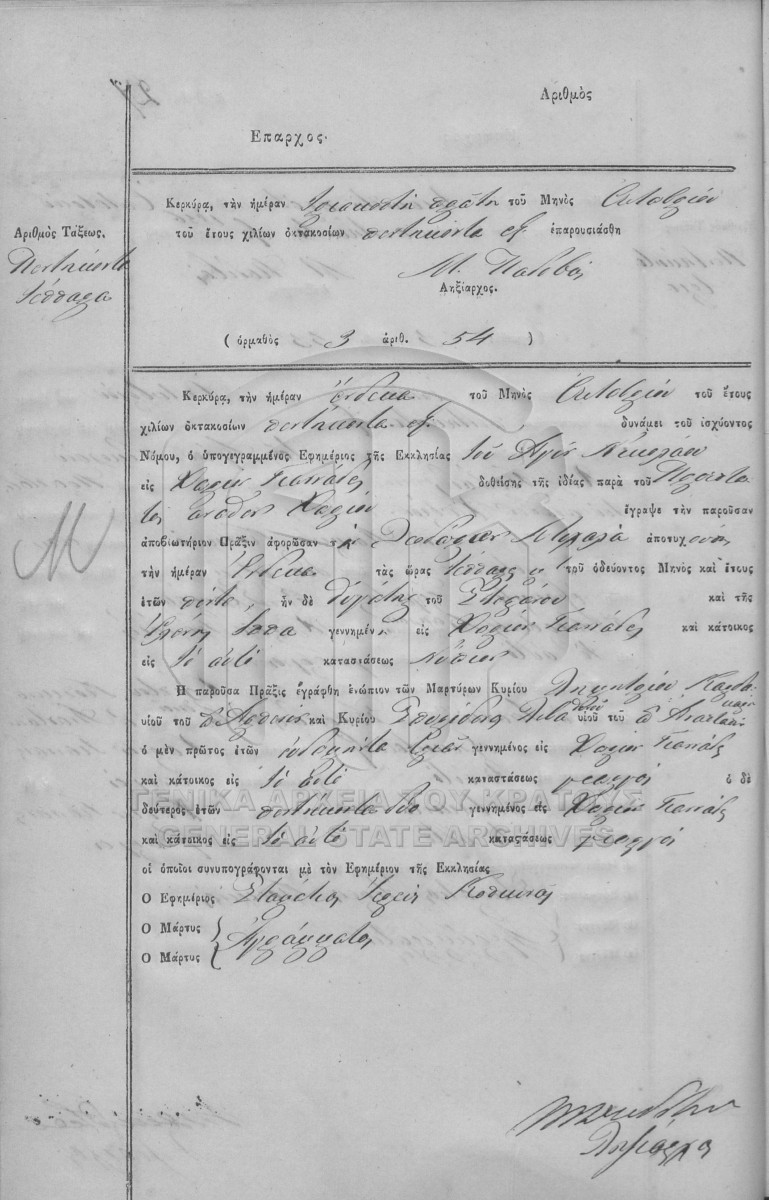 Αριθμὸς
Επαρχος.
Αριθμὸς Τάξεως.
Πεντήκοντα
τέσσαρα
Κερκύρα, τὴν ἡμέραν τριακοστὴ πρώτη τοῦ Μηνὸς Οκτωβρίου
τοῦ ἔτους χιλίων ὀκτακοσίων πεντήκοντα ἓξ ἐπαρουσιάσθη
Μ.
Ληξίαρχος.
( ὁρμαθὸς 3 ἀριθ. 54 )
Κερκύρα, τὴν ἡμέραν ἕνδεκα τοῦ Μηνὸς Οκτωβρίου τοῦ ἔτους
χιλίων ὀκτακοσίων πεντήκοντα ἓξ δυνάμει τοῦ ἰσχύοντος
Νόμου, ὁ ὑπογεγραμμένος Εφημέριος τῆς Εκκλησίας τοῦ Αγίου Νικολάου
εἰς Χωρίον Γιανάδες δοθείσης τῆς ἰδέας παρὰ τοῦ Προεστο
τος ἄνωθεν Χωρίου ἔγραψε τὴν παροῦσαν
ἀποβιωτήριον Πρᾶξιν ἀφορῶσαν τὴν ἀποτυχοῦσαν
τὴν ἡμέραν ἕνδεκα τὰς ὥρας τέσσαρες τοῦ ὁδεύοντος Μηνὸς καὶ ἔτους
ἐτῶν πέντε, ἦν δὲ θυγάτηρ τοῦ Στεφάνου καὶ τῆς
Ελένης γεννημένη εἰς Χωρίον Γιανάδες καὶ κάτοικος
εἰς τὸ αὐτὸ καταστάσεως νήπιον
Η παροῦσα Πρᾶξις ἐγράφθη ἐνώπιον τῶν Μαρτύρων Κυρίου Δημητρίου
υἱοῦ τοῦ καὶ Κυρίου Σπυρίδωνος υἱοῦ τοῦ ποτὲ Αναστασίου
ὁ μὲν πρῶτος ἐτῶν ἑβδομήντα τριῶν γεννημένος εἰς Χωρίον Γιανάδες
καὶ κάτοικος εἰς τὸ αὐτὸ καταστάσεως γεωργὸς ὁ δὲ
δεύτερος ἐτῶν πεντήκοντα δύο γεννημένος εἰς Χωρίον Γιανάδες
καὶ κάτοικος εἰς τὸ αὐτὸ καταστάσεως γεωργὸς
οἱ ὁποῖοι συνυπογράφονται μὲ τὸν Εφημέριον τῆς Εκκλησίας
Ο Εφημέριος Ιερεὺς
Ο Μάρτυς
Ο Μάρτυς
Αγράμματος
ΓΕΝΙΚΑ ΑΡΧΕΙΑ ΤΟΥ ΚΡΑΤΟΥΣ
GENERAL STATE ARCHIVES